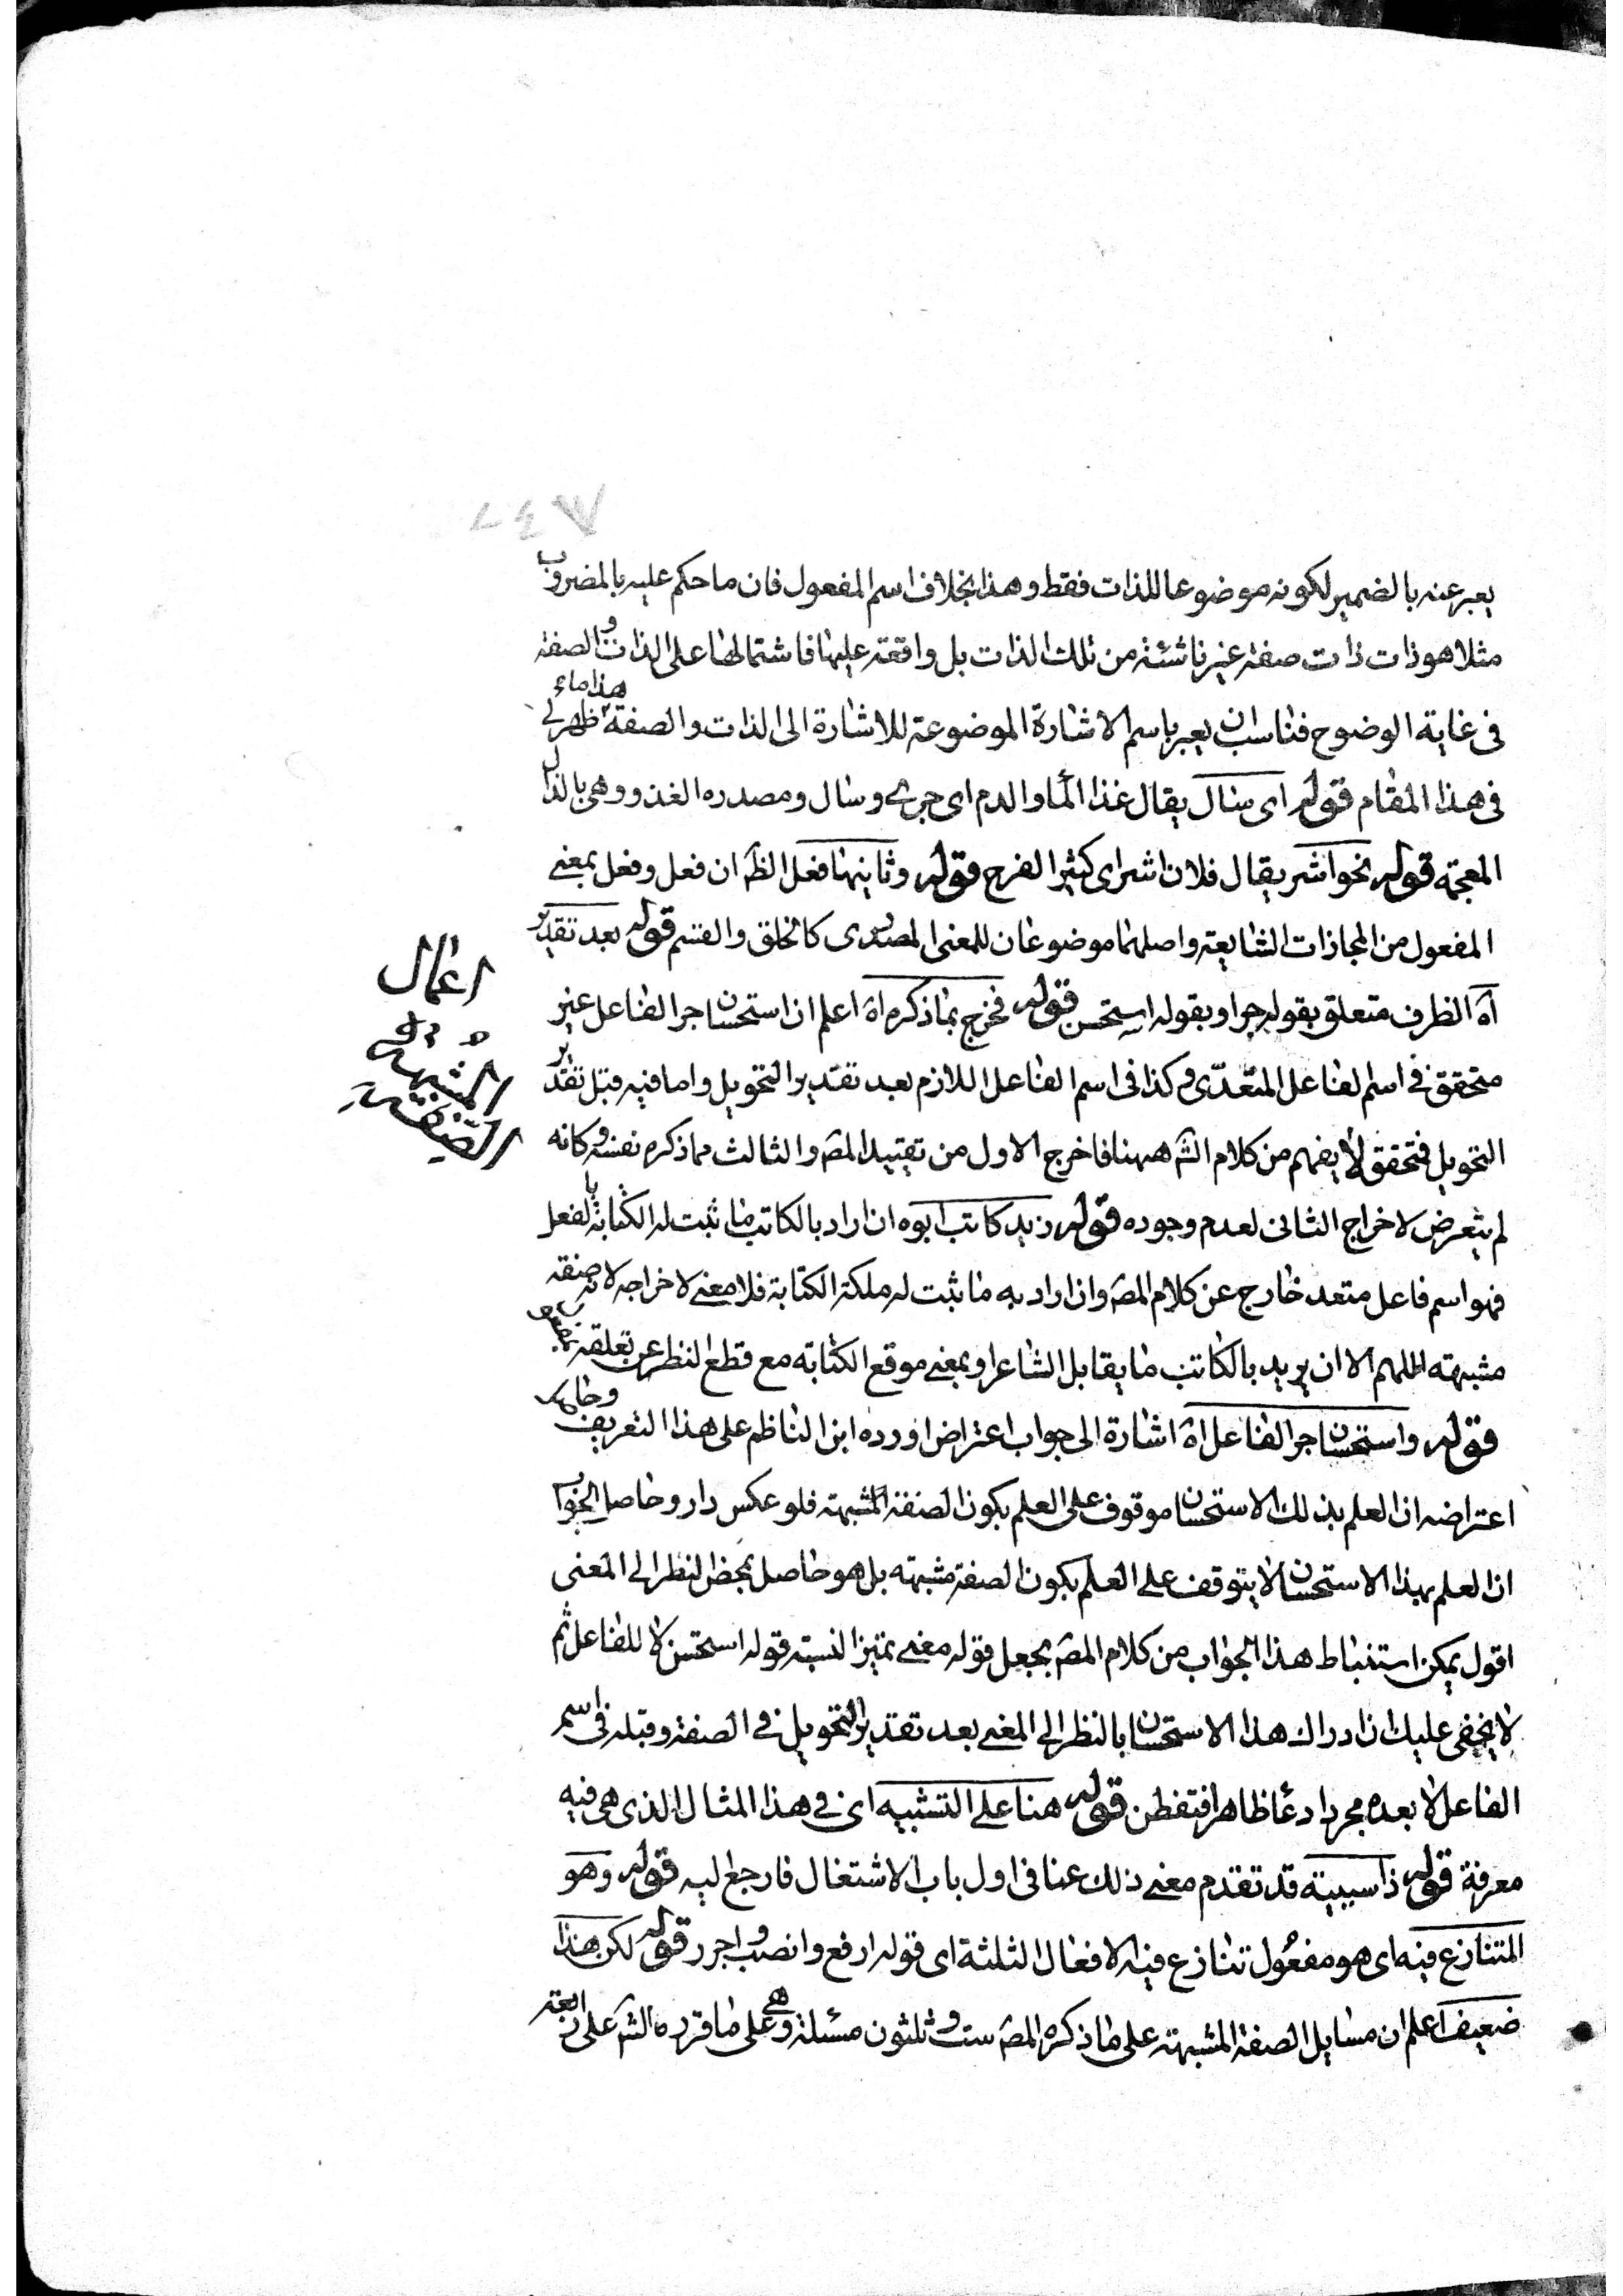 يعبر عنه بالضمير لكونه موضوعا للذات فقط وهذا بخلاف اسم المفعول فان ما حكم عليه بالمضروب
مثلا هو ذات ذات صفة غير ناشئة من تلك الذات بل واقعة عليها فاشتمالها على الذات والصفة
في غاية الوضوح فناسب ان يعبر باسم الاشارة الموضوعة للاشارة الى الذات والصفة هذا ما ظهر لي
في هذا المقام قوله اى سال يقال غذا الماء والدم اى جرى وسال ومصدره الغذو وهى بالذال
المعجمة قوله نحو اشر يقال فلان اشر اى كثير الفرح قوله وثانيها فعل الظ ان فعل وفعل بمعنى
المفعول من المجازات الشايعة واصلهما موضوعان للمعنى المصدرى كالخلق والقسم قوله بعد تقدير
آه الظرف متعلق بقوله جر او بقوله استحسن قوله فخرج بما ذكره اه اعلم ان استحسان جر الفاعل غير
متحقق فى اسم الفاعل المتعدّى وكذا فى اسم الفاعل اللازم بعد تقدير التحويل واما فيه قبل تقدير
التحويل فتحقق لا يفهم من كلام الش ههنا فاخرج الاول من تقييد المص والثالث مما ذكره نفسه وكانه
لم يتعرض لاخراج الثانى لعدم وجوده قوله زيد كاتب ابوه ان اراد بالكاتب ما ثبت له الكتابة بالفعل
فهو اسم فاعل متعد خارج عن كلام المص وان اراد به ما ثبت له ملكة الكتابة فلا معنى لاخراجه لانه صفة
مشبهة اللهم الا ان يريد بالكاتب ما يقابل الشاعر او بمعنى موقع الكتابة مع قطع النظر عن تعلقه
قوله واستحسان جر الفاعل اه اشارة الى جواب اعتراض اورده ابن الناظم على هذا التعريف وحاصل
اعتراضه ان العلم بذلك الاستحسان موقوف على العلم بكون الصفة المشبهة فلو عكس دار وحاصل الجواب
ان العلم بهذا الاستحسان لا يتوقف على العلم بكون الصفة مشبهة بل هو حاصل بمحض النظر الى المعنى
اقول يمكن استنباط هذا الجواب من كلام المص بجعل قوله معنى تميزا لنسبة قوله استحسن لا للفاعل ثم
لا يخفى عليك ان ادراك هذا الاستحسان بالنظر الى المعنى بعد تقدير التحويل فى الصفة وقبله فى اسم
الفاعل لا بعده مجرد ادعا ظاهرا فتفطن قوله هنا على التشبيه اى فى هذا المثال الذى هى فيه
معرفة قوله ذا سببية قد تقدم معنى ذلك عنا فى اول باب الاشتغال فارجع اليه قوله وهو
المتنازع فيه اى هو مفعُول تنازع فيه الافعال الثلثة اى قوله ارفع وانصب واجرر قوله لكن هذا
ضعيف اعلم ان مسايل الصفة المشبهة على ما ذكره المص ست وثلثون مسئلة وهى على ما قرره الش على
اعمال
الصفة
المشبهة